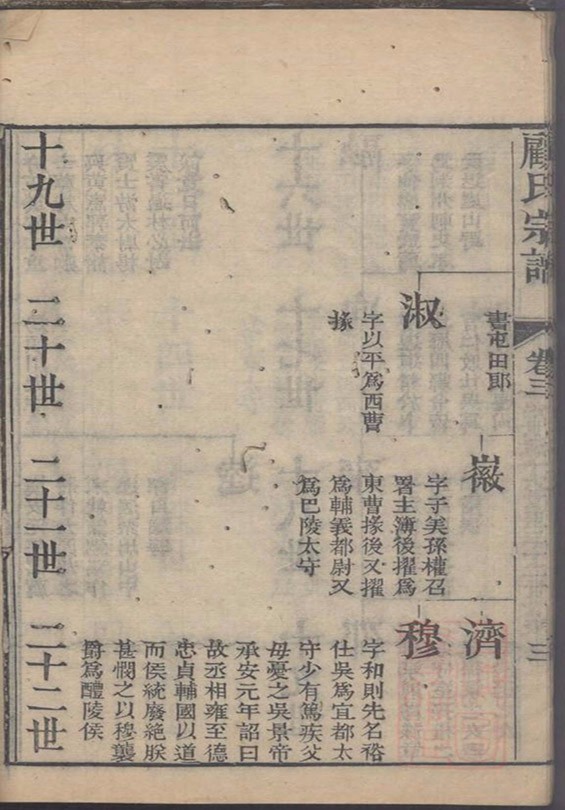 顧氏宗譜
卷三
三
書屯田郎
淑
字以平爲西曹
掾
徽
字子美孫權召
署主簿後擢爲
東曹掾後又擢
爲輔義都尉又
爲巴陵太守
濟
穆
字和則先名裕
仕吳爲宜都太
守少有篤疾父
毋憂之吳景帝
承安元年詔曰
故丞相雍至德
忠貞輔國以道
而侯統廢絶朕
甚憫之以穆襲
爵爲醴陵侯
十九世
二十世
二十一世
二十二世